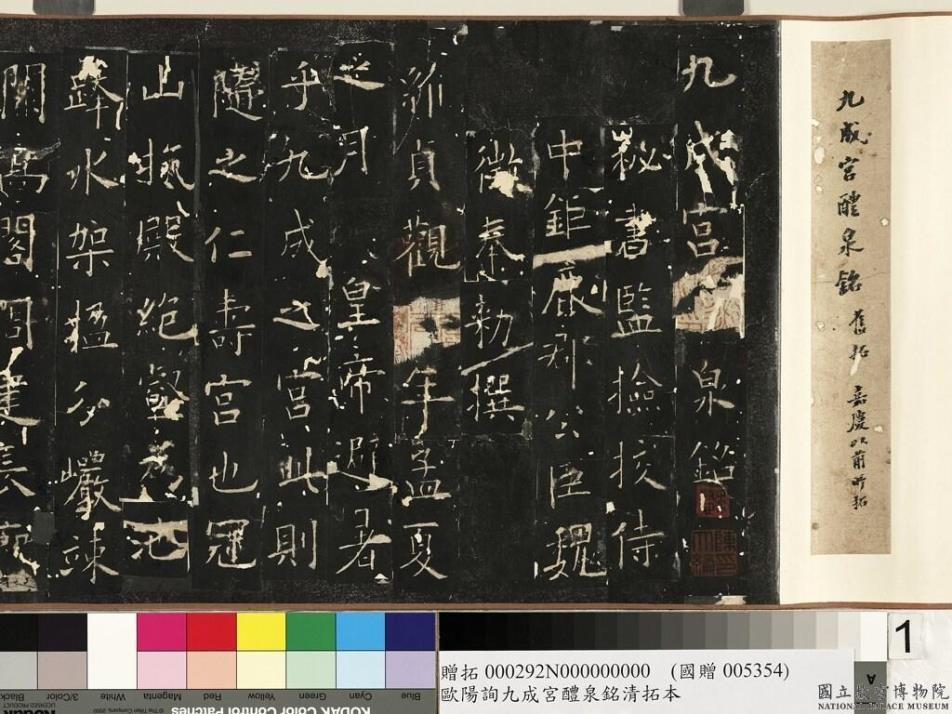 九成宮醴泉銘 舊拓 嘉慶以前所拓
九成宮泉銘
秘書監撿挍侍
中鉅鹿郡公臣魏
徵奉勅撰
維貞觀年孟夏
之月皇帝避暑
乎九成之宮此則
隨之仁壽宮也冠
山抗殿絕壑為池
跨水架楹分巖竦
闕高閣周建長廊
Blue Cyan Green Yellow Red Magenta White 3/Color Black
1
A
贈拓 000292N000000000 (國贈 005354)
歐陽詢九成宮醴泉銘清拓本
國立故宮博物院
NATIONAL PALACE MUSEUM